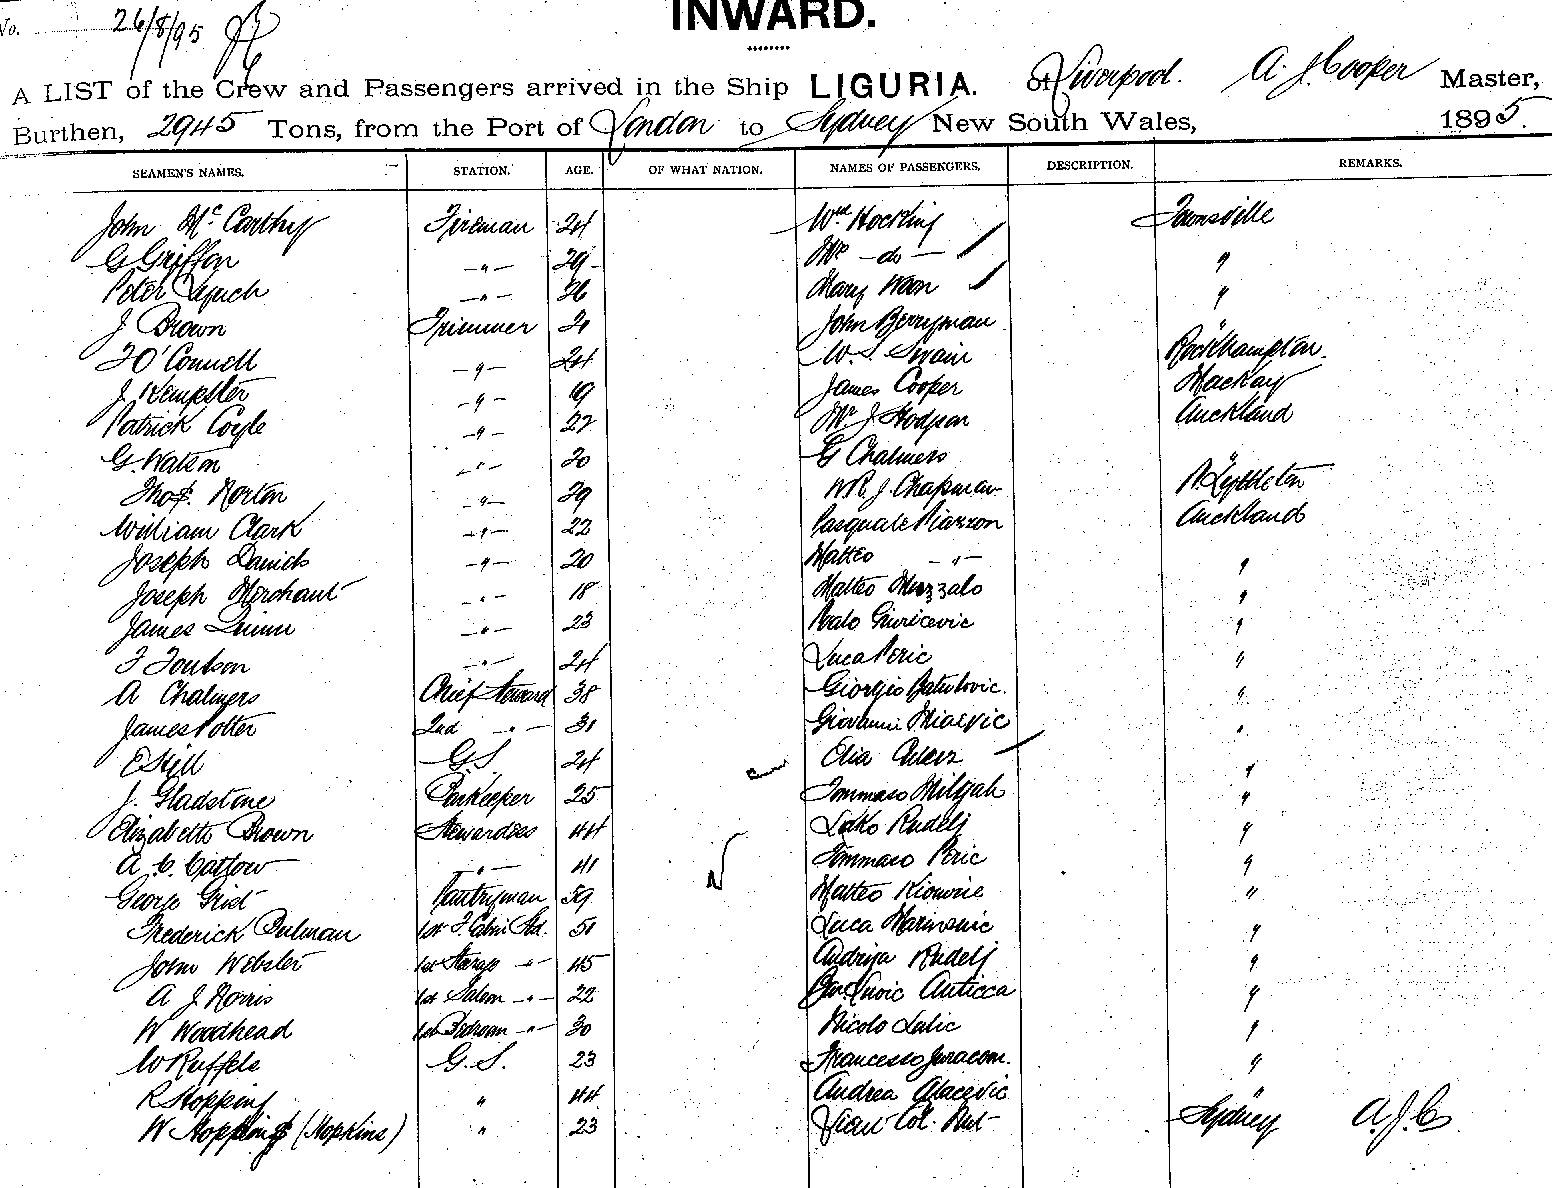 No. 26/8/95
INWARD.
A LIST of the Crew and Passengers arrived in the Ship LIGURIA. of Liverpool. A. J. Cooper Master,
Burthen, 2945 Tons, from the Port of London to Sydney New South Wales, 1895.
SEAMEN'S NAMES. STATION. AGE. OF WHAT NATION. NAMES OF PASSENGERS. DESCRIPTION. REMARKS.
John McCarthy Fireman 24 Wm Hocking Townsville
G Griffon -"- 29 -do- "
Peter Lynch -"- 26 Mary "
J Brown Trimmer 21 John Berryman "
J O'Connell -"- 24 W. S. Swain Rockhampton.
J. Kempster -"- 19 James Cooper Mackay
Patrick Coyle -"- 22 Mr J Hodson Auckland
G. Watson -"- 20 G Chalmers "
Thos. Norton -"- 29 W R. J. Chapman Lyttleton
William Clark -"- 22 Pasquale Piazzon Auckland
Joseph Daniels -"- 20 Matteo -"- "
Joseph Merchant -"- 18 Matteo "
James Quinn -"- 23 Giuricevic "
-"- 24 Luca Peric "
A Chalmers Chief Steward 38 Giorgio "
James Potter 2nd -"- 31 Giovanni "
E Still G.S. 24 Elia "
J. Gladstone Barkeeper 25 Tommaso "
Elizabeth Brown Stewardess 44 Rudelj "
A. C. Catlow -"- 41 Tommaso Peric "
George Grist Pantryman 59 Matteo "
Frederick Pulman 1st 50 Luca Marinovic "
John Webster 1st Steerage -"- 45 Andrija Rudelj "
A J. Norris 1st Saloon -"- 22 Anticca "
W Woodhead 1st Bedroom -"- 30 Nicolo Lalic "
W Ruffels G.S. 23 Francesco "
R Hopping " 44 Andrea "
W Hopping (Hopkins) " 23 Sydney A.J.C.